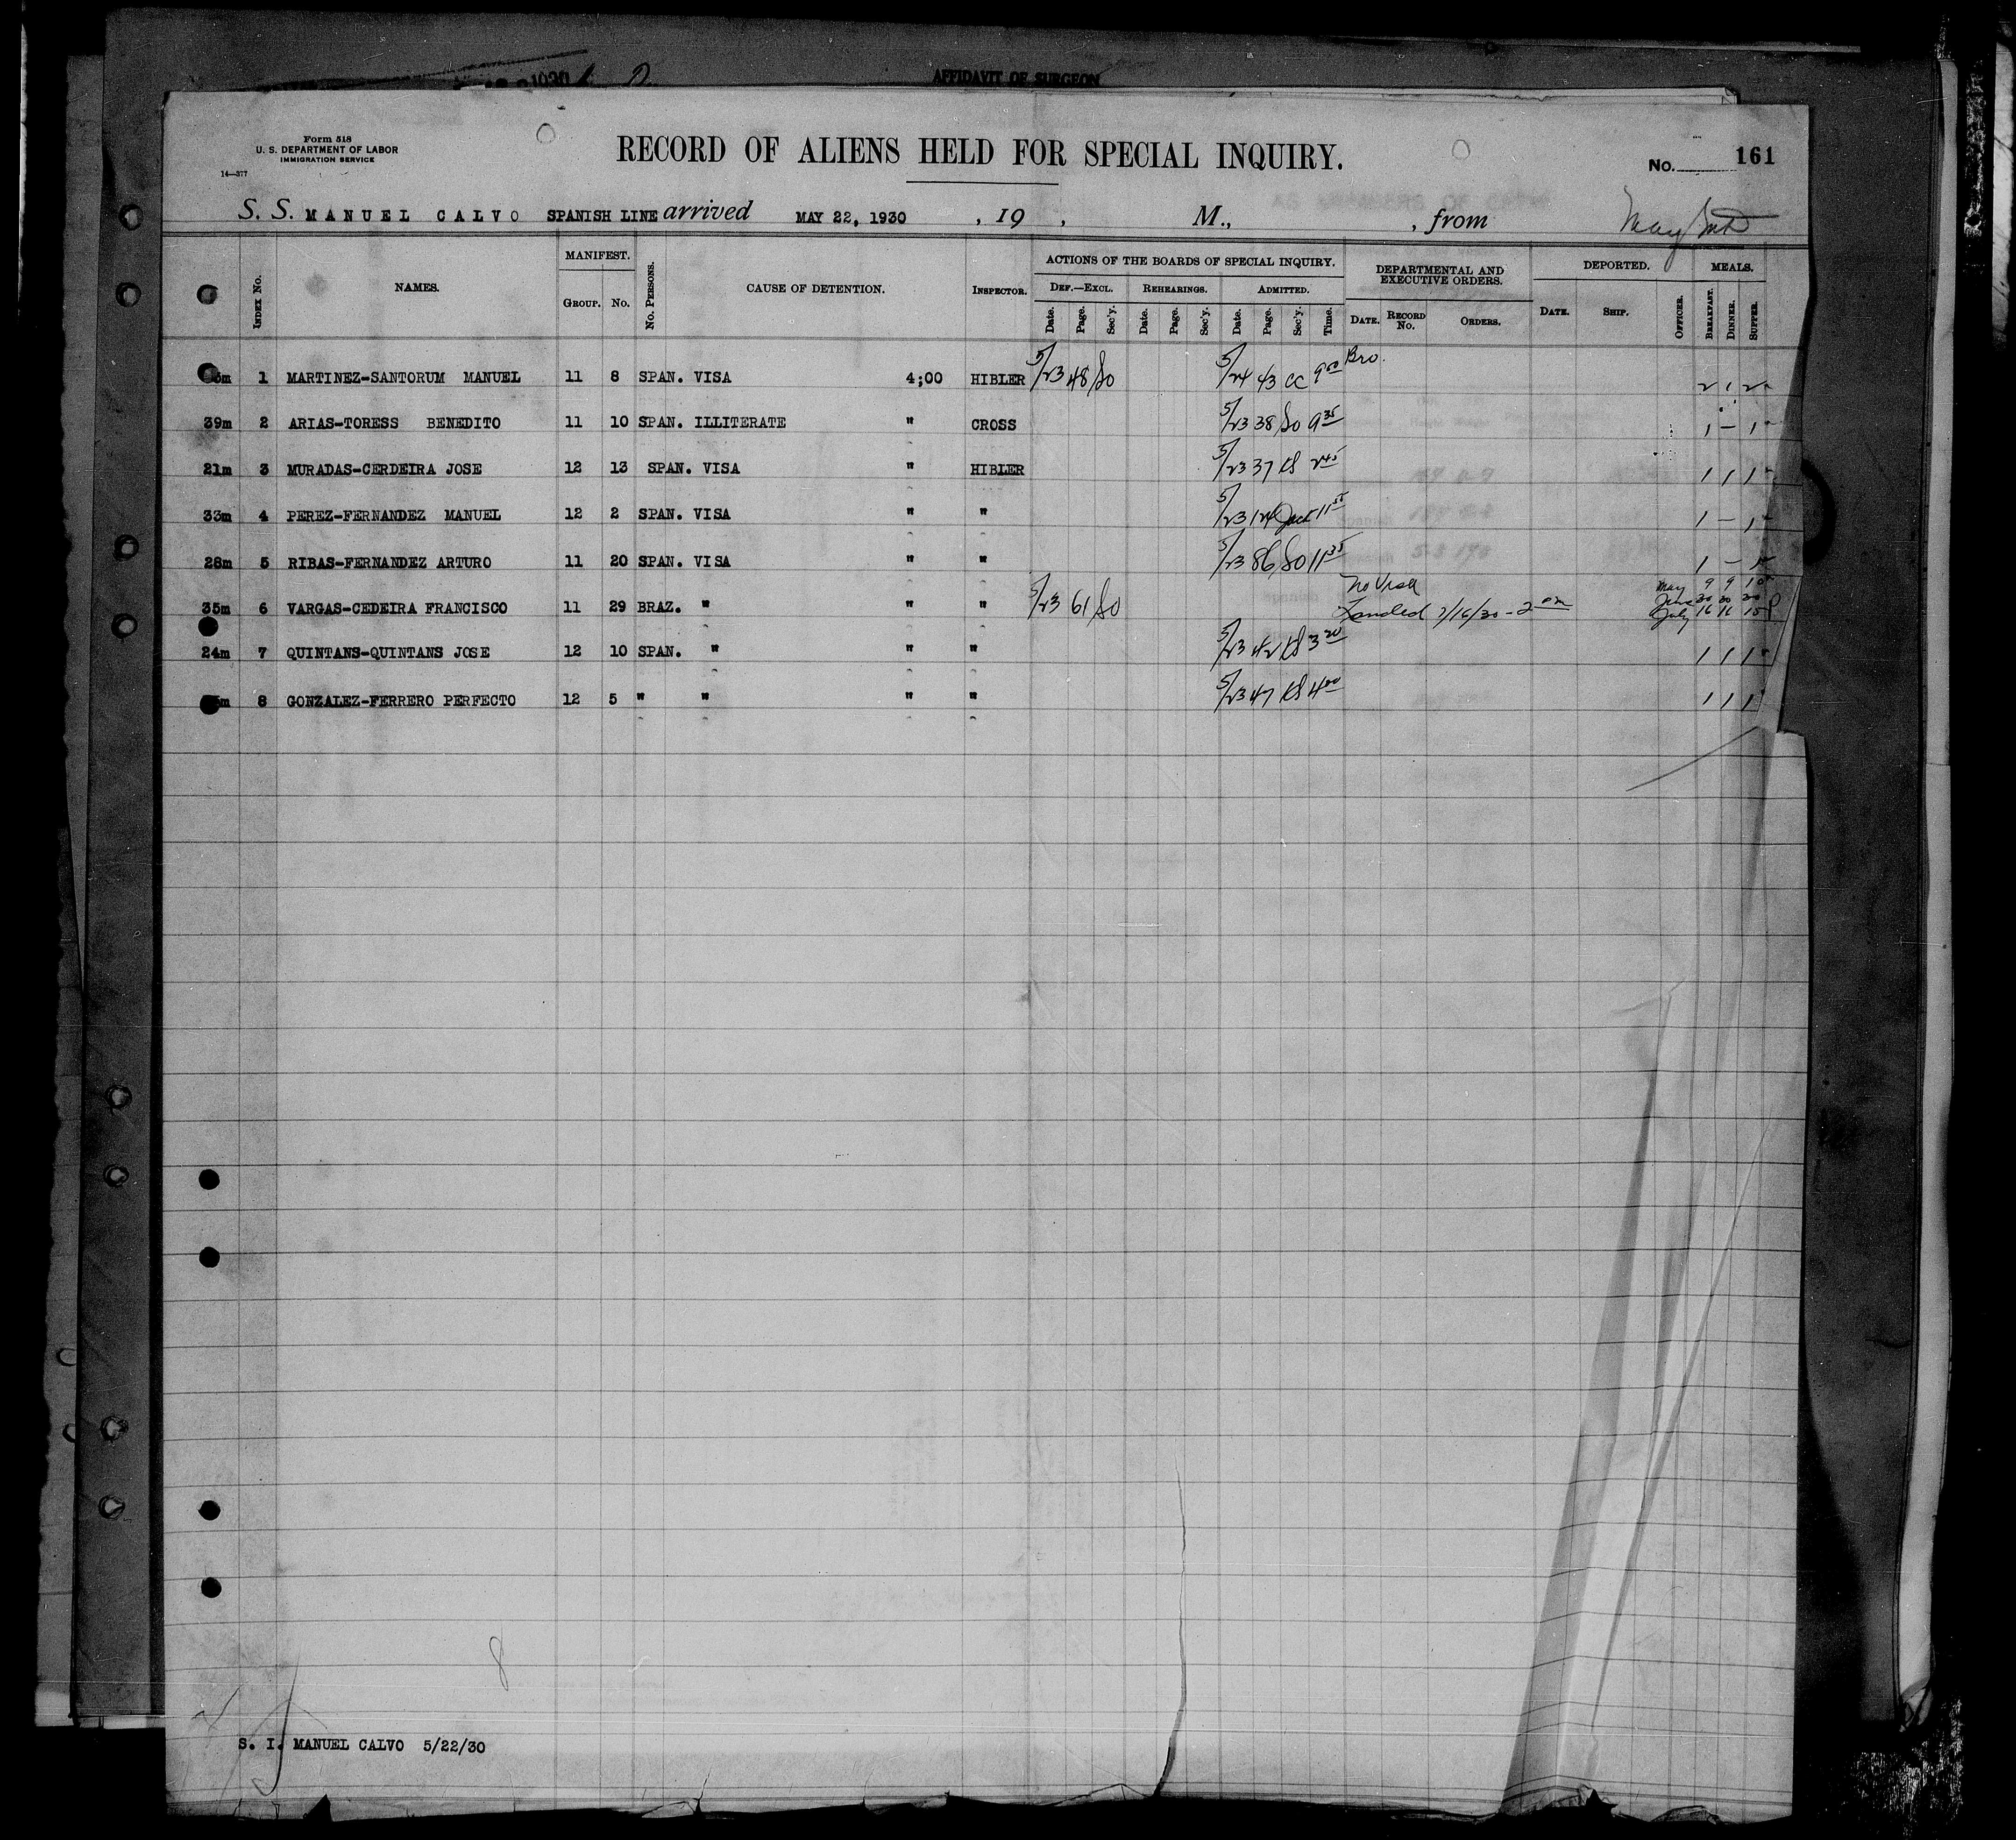 1930
AFFIDAVIT OF SURGEON
Form 518
U. S. DEPARTMENT OF LABOR
IMMIGRATION SERVICE
14—377
RECORD OF ALIENS HELD FOR SPECIAL INQUIRY.
No. 161
S. S. MANUEL CALVO SPANISH LINE arrived MAY 22, 1930 , 19 , M., , from
MANIFEST. ACTIONS OF THE BOARDS OF SPECIAL INQUIRY. DEPARTMENTAL AND EXECUTIVE ORDERS. DEPORTED. MEALS.
INDEX NO. NAMES. GROUP. NO. NO. PERSONS. CAUSE OF DETENTION. INSPECTOR. DEF.—EXCL. REHEARINGS. ADMITTED.
Date. Page. Sec'y. Date. Page. Sec'y. Date. Page. Sec'y. Time. DATE. RECORD NO. ORDERS. DATE. SHIP. OFFICER. BREAKFAST. DINNER. SUPPER.
1 MARTINEZ-SANTORUM MANUEL 11 8 SPAN. VISA 4;00 HIBLER 5/23 48 SO 5/24 43 CC 9 00 Bro. 2 1 2
39m 2 ARIAS-TORESS BENEDITO 11 10 SPAN. ILLITERATE " CROSS 5/23 38 SO 9 35 1 – 1
21m 3 MURADAS-CERDEIRA JOSE 12 13 SPAN. VISA " HIBLER 5/23 37 KS 2 45 1 1 1
33m 4 PEREZ-FERNANDEZ MANUEL 12 2 SPAN. VISA " " 5/23 124 11 55 1 – 1
28m 5 RIBAS-FERNANDEZ ARTURO 11 20 SPAN. VISA " " 5/23 86 SO 11 35 1 – 1
35m 6 VARGAS-CEDEIRA FRANCISCO 11 29 BRAZ. " " " 5/23 61 SO No Visa May 9 9 10
Landed 7/16/30 - 2 pm June 30 30 30
July 16 16 15
24m 7 QUINTANS-QUINTANS JOSE 12 10 SPAN. " " " 5/23 42 KS 3 20 1 1 1
8 GONZALEZ-FERRERO PERFECTO 12 5 " " " " 5/23 47 KS 4 00 1 1 1
8
S. I. MANUEL CALVO 5/22/30